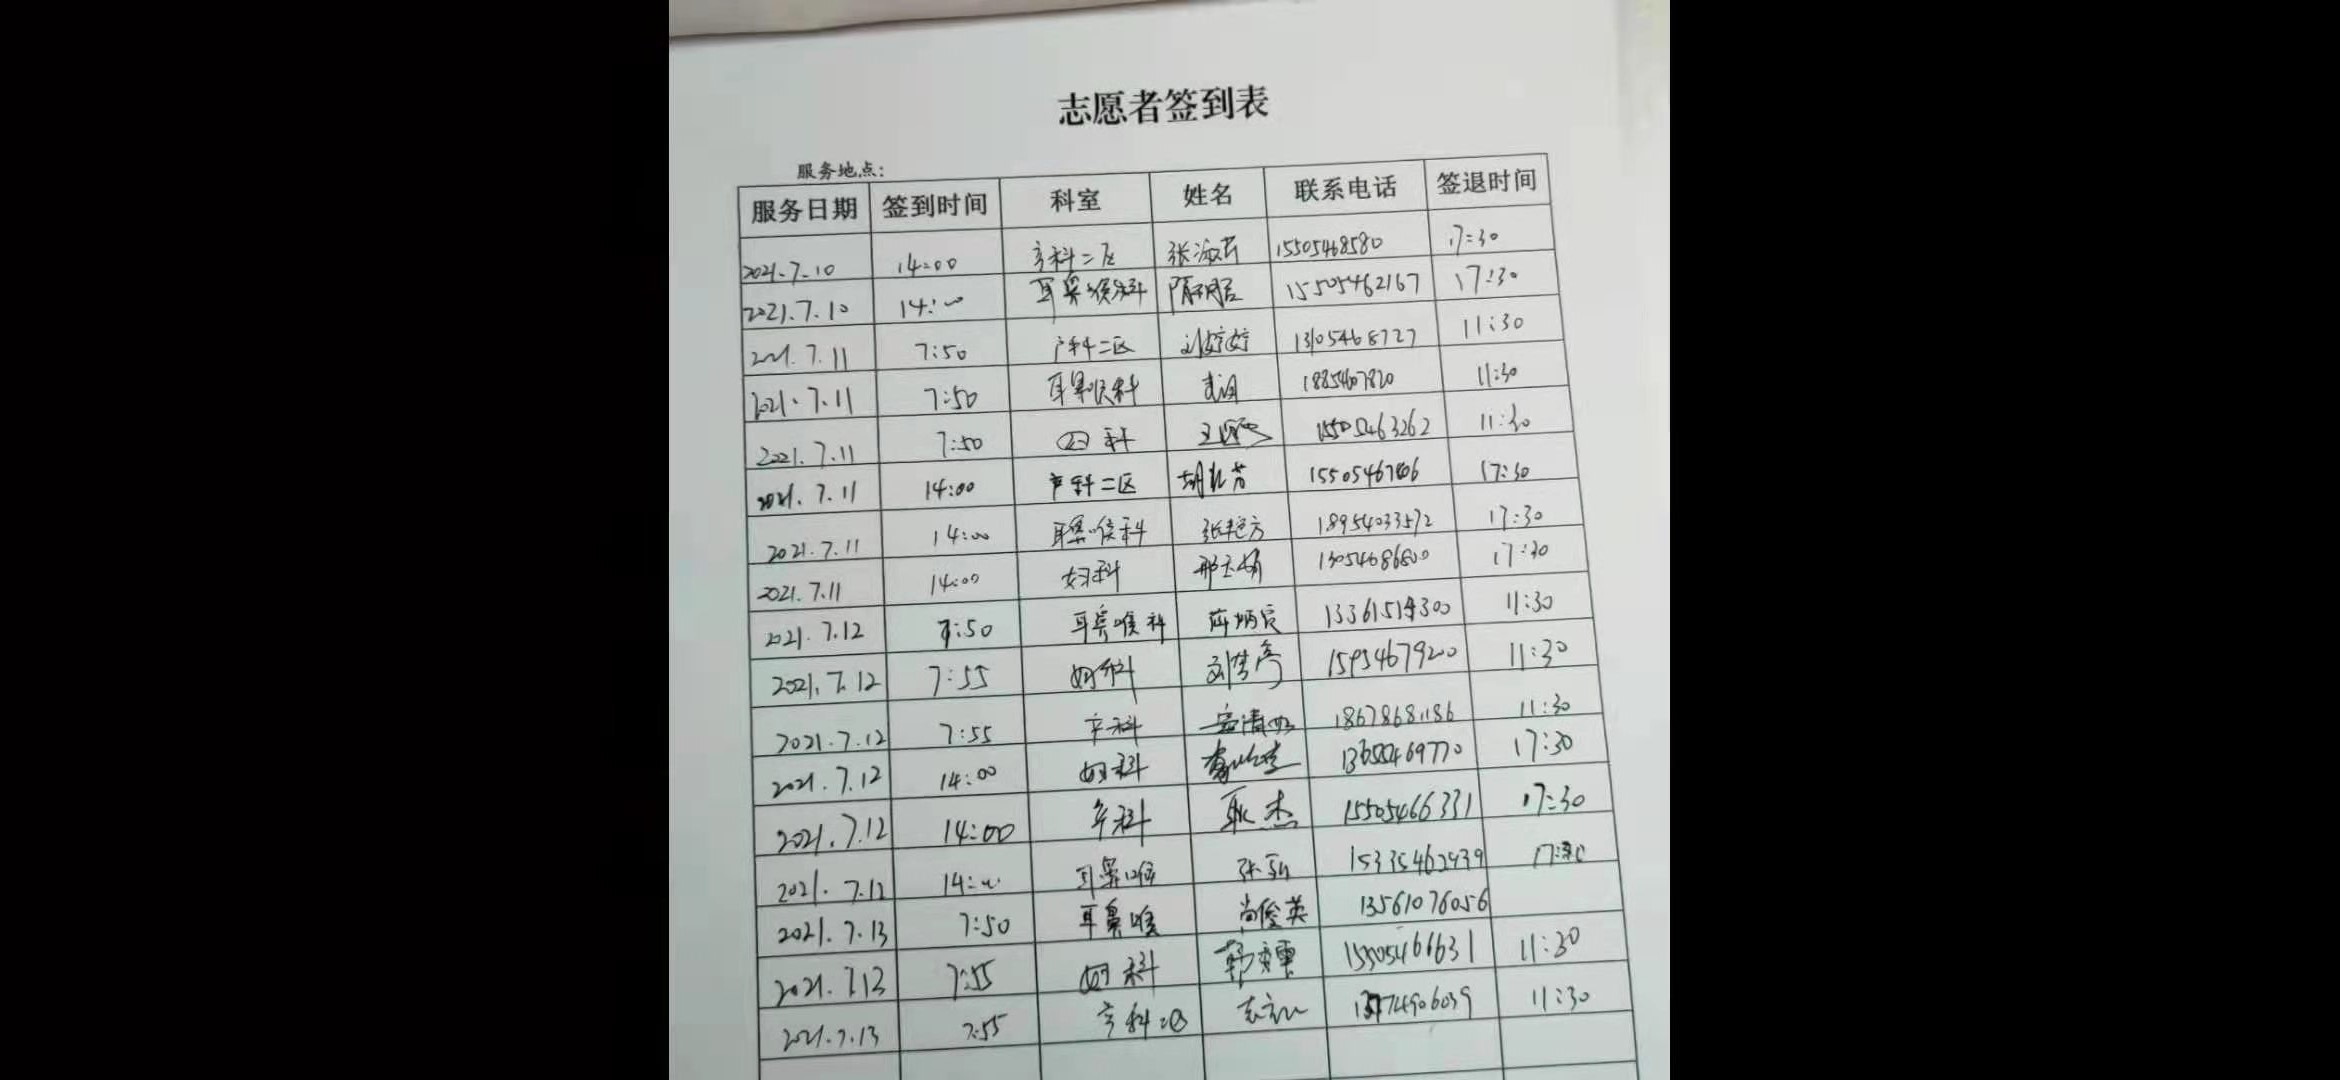 志愿者签到表
服务地点:
服务日期 签到时间 科室 姓名 联系电话 签退时间
2021.7.10 14:00 产科二区 张淑芳 15505468580 17:30
2021.7.10 14:00 耳鼻喉科 15505462167 17:30
2021.7.11 7:50 产科二区 刘婷婷 13105468727 11:30
2021.7.11 7:50 耳鼻喉科 11:30
2021.7.11 7:50 妇科 15505463262 11:30
2021.7.11 14:00 产科二区 17:30
2021.7.11 14:00 耳鼻喉科 张艳方 18954033572 17:30
2021.7.11 14:00 妇科 13054686800 17:30
2021.7.12 7:50 耳鼻喉科 11:30
2021.7.12 7:55 妇科 刘梦 15954679200 11:30
2021.7.12 7:55 产科 18678681186 11:30
2021.7.12 14:00 妇科 17:30
2021.7.12 14:00 产科 耿杰 15505466331 17:30
2021.7.12 14:00 耳鼻喉 张 15335462939 17:30
2021.7.13 7:50 耳鼻喉 尚俊英 13561076056
2021.7.13 7:55 妇科 韩 15505466631 11:30
2021.7.13 7:55 产科二区 11:30